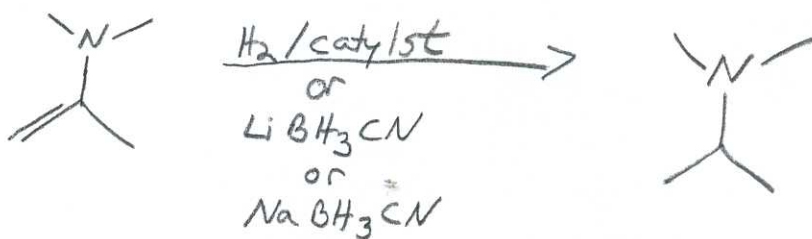 N
H₂/catylst
or
LiBH₃CN
or
NaBH₃CN
N